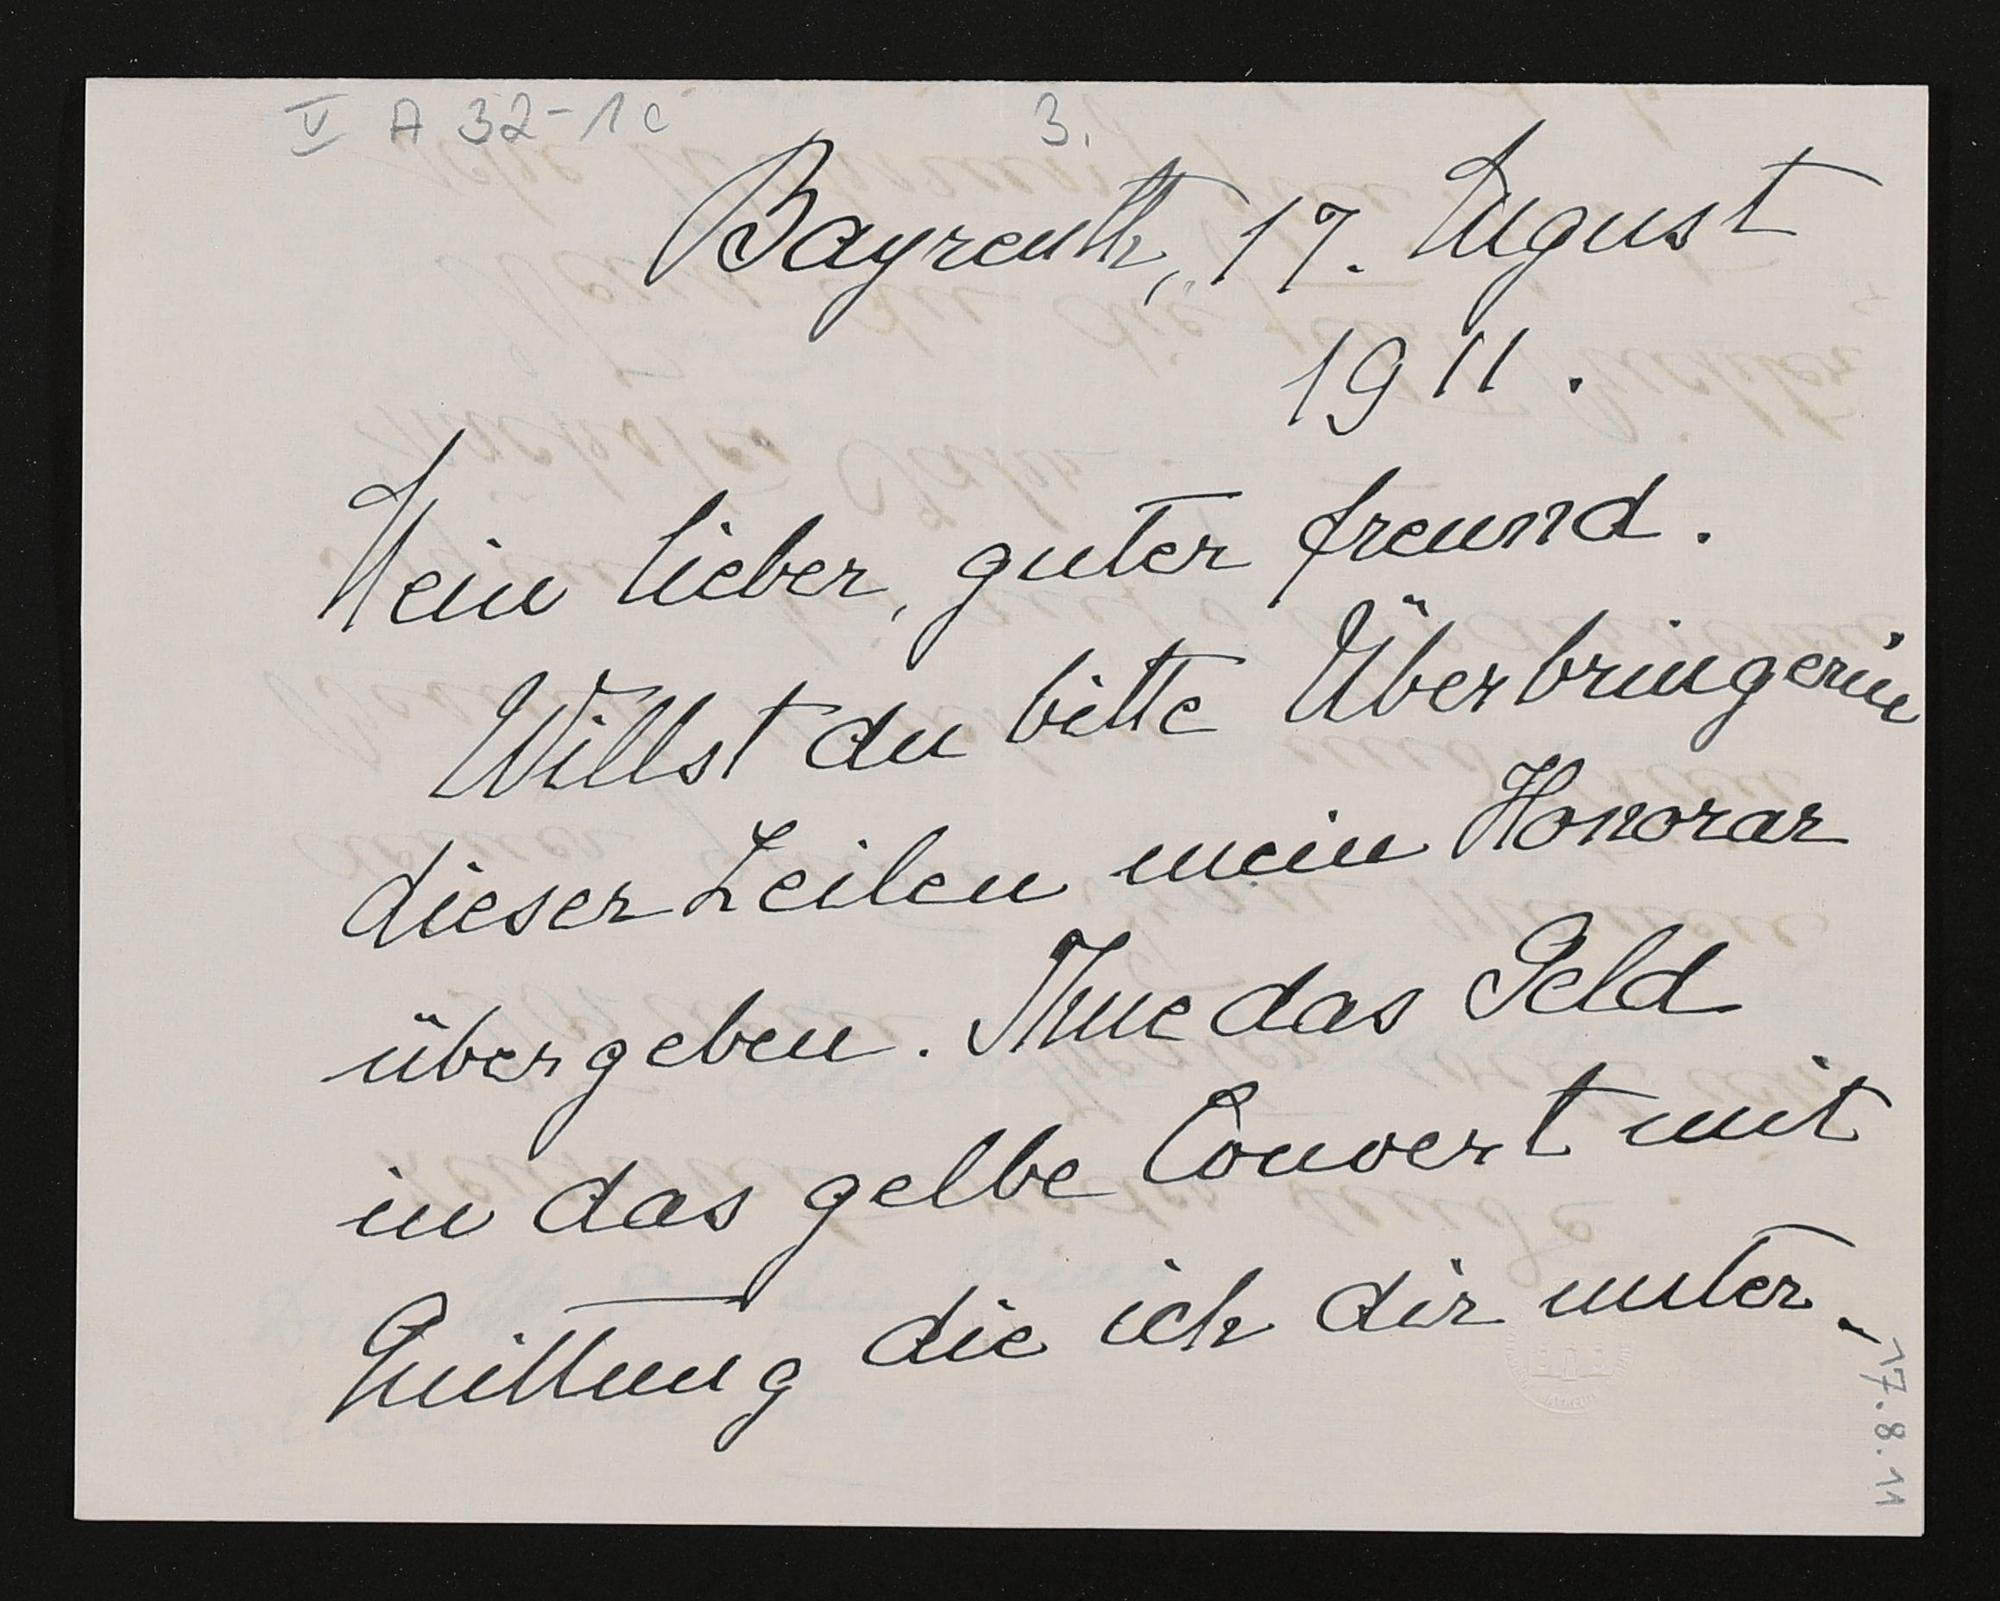 V A 32-1c 3.
Bayreuth, 17. August
1911.
Mein lieber, guter Freund.
Willst du bitte Überbringerin
dieser Zeilen mein Honorar
übergeben. Thue das Geld
in das gelbe Couvert mit
Quittung die ich dir unter-
17.8.11